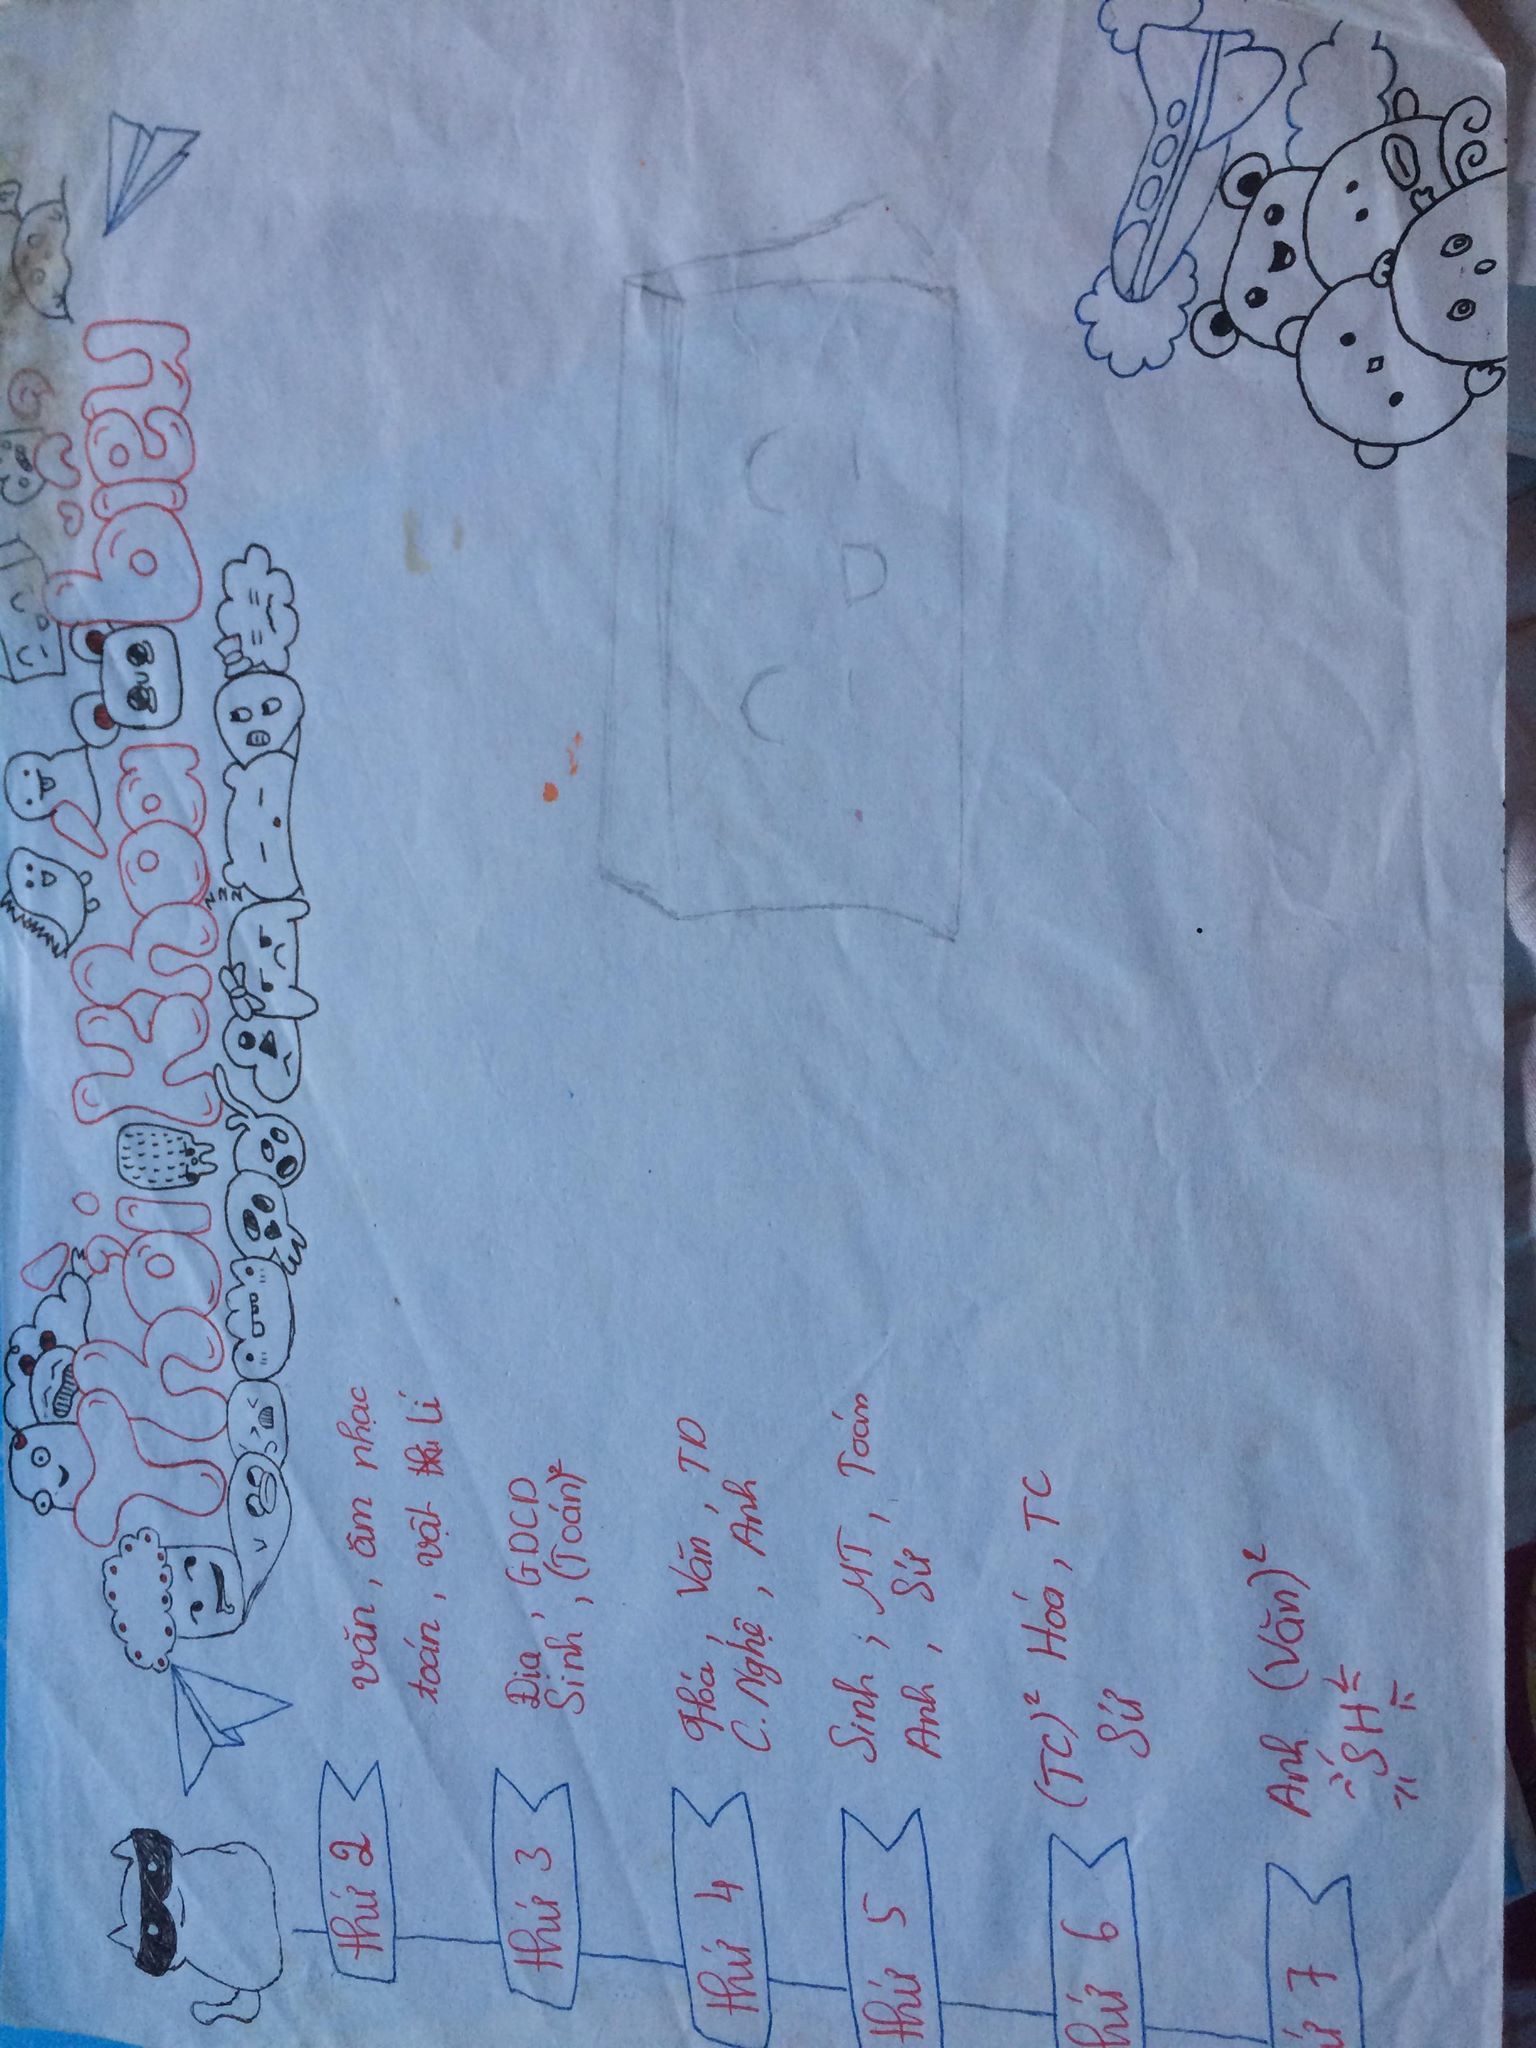 Thời khoá biểu
thứ 2
văn, âm nhạc
toán, vật lí
thứ 3
Địa, GDCD
Sinh, (Toán)²
thứ 4
Hoá, Văn, TD
C.Nghệ, Anh
thứ 5
Sinh, MT, Toán
Anh, Sử
thứ 6
(TC)² Hoá, TC
Sử
thứ 7
Anh (Văn)²
SH